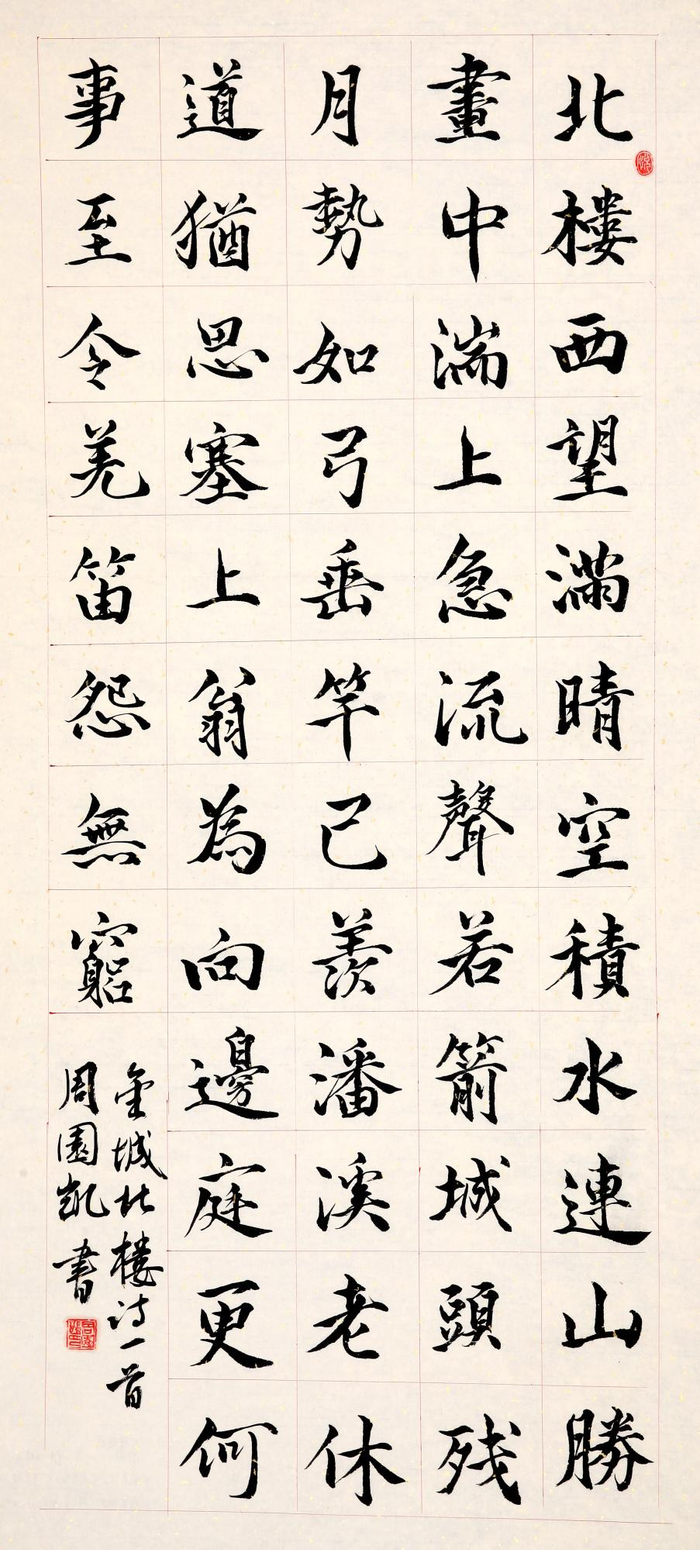 北樓西望滿晴空積水連山勝
畫中湍上急流聲若箭城頭残
月勢如弓垂竿已羨潘溪老休
道猶思塞上翁為向邊庭更何
事至今羌笛怨無窮
金城北樓诗一首
周園凱書